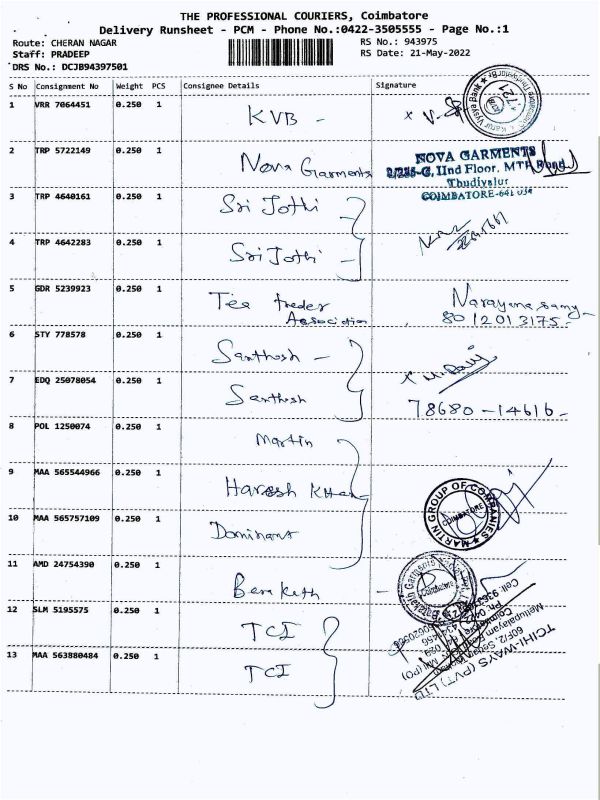 THE PROFESSIONAL COURIERS, Coimbatore
Delivery Runsheet - PCM - Phone No.:0422-3505555 - Page No.:1
Route: CHERAN NAGAR RS No.: 943975
Staff: PRADEEP RS Date: 21-May-2022
DRS No.: DCJB94397501
S No Consignment No Weight PCS Consignee Details Signature
1 VRR 7064451 0.250 1 KVB -
2 TRP 5722149 0.250 1 Nova Garments
NOVA GARMENTS
2/235-G, IInd Floor, MTP Road
Thudiyalur
COIMBATORE-641 034
3 TRP 4640161 0.250 1 Sri Jothi
4 TRP 4642283 0.250 1 Sri Jothi
5 GDR 5239923 0.250 1 Tea treder Association
Narayana samy
80 12013175-
6 STY 778578 0.250 1 Santhosh -
7 EDQ 25078054 0.250 1 Santhosh
78680-14616-
8 POL 1250074 0.250 1 Martin
9 MAA 565544966 0.250 1 Haresh
MARTIN GROUP OF COMPANIES
COIMBATORE
10 MAA 565757109 0.250 1 Dominant
11 AMD 24754390 0.250 1 Barakath
12 SLM 5195575 0.250 1 TCI
13 MAA 563880484 0.250 1 TCI